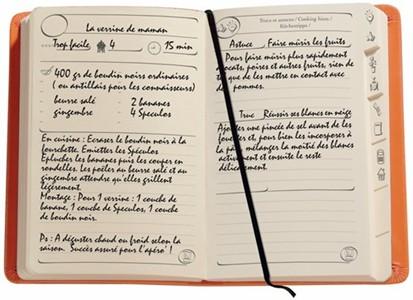 La verrine de maman
Trop facile 4 15 min
400 gr de boudin noirs ordinaires
( ou antillais pour les connaisseurs)
beurre salé 2 bananes
gingembre 4 Speculos
En cuisine : Ecraser le boudin noir à la
fourchette. Emietter les Speculos
Eplucher les bananes puis les couper en
rondelles. Les poëler au beurre salé et au
gingembre attendre qu'elles grillent
légèrement.
Montage : Pour 1 verrine : 1 couche de
banane, 1 couche de Speculos, 1 couche
de boudin noir.
Ps : A déguster chaud ou froid selon la
saison. Succès assuré pour l'apéro' !
Trucs et astuces / Cooking hints /
Küchentipps /
Astuce Faire mûrir les fruits
Pour faire mûrir plus rapidement
avocats, poires et autres fruits, rien de
tel que de les mettre en contact avec
des pommes.
Truc Réussir ses blancs en neige
Ajouter une pincée de sel avant de les
fouetter et, pour bien les incorporer à
la pâte mélanger la moitié des blancs
activement et ensuite le reste
délicatement.